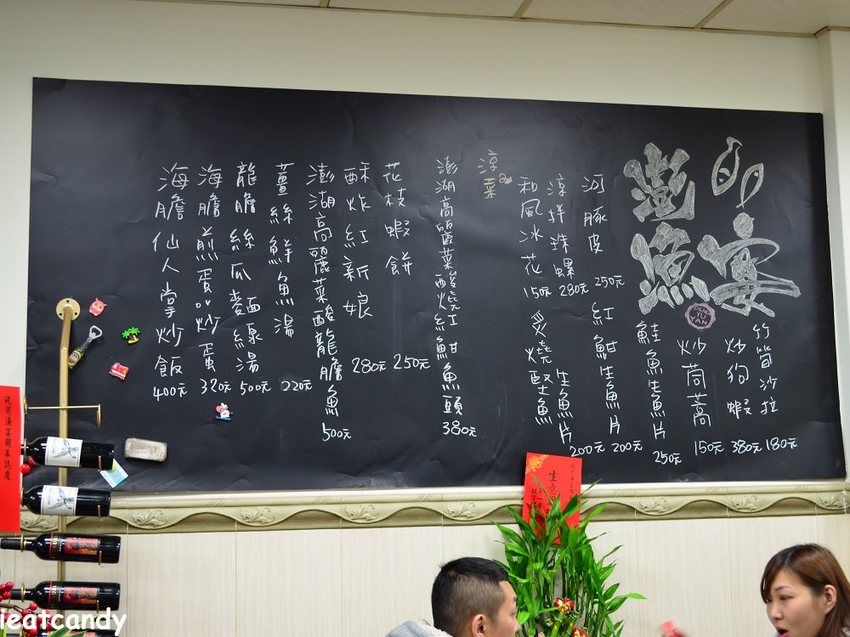 澎漁宴
竹筍沙拉 180元
炒狗蝦 380元
炒茼蒿 150元
鮭魚生魚片 250元
紅魽生魚片 200元
炙燒堅魚生魚片 200元
河豚皮 250元
涼拌珠螺 280元
和風冰花 150元
涼菜
澎湖高麗菜酸燒紅魽魚頭 380元
花枝蝦餅 250元
酥炸紅新娘 280元
澎湖高麗菜酸龍膽魚 500元
薑絲鮮魚湯 220元
龍膽絲瓜麵線湯 500元
海膽煎蛋 炒蛋 320元
海膽仙人掌炒飯 400元
ieatcandy